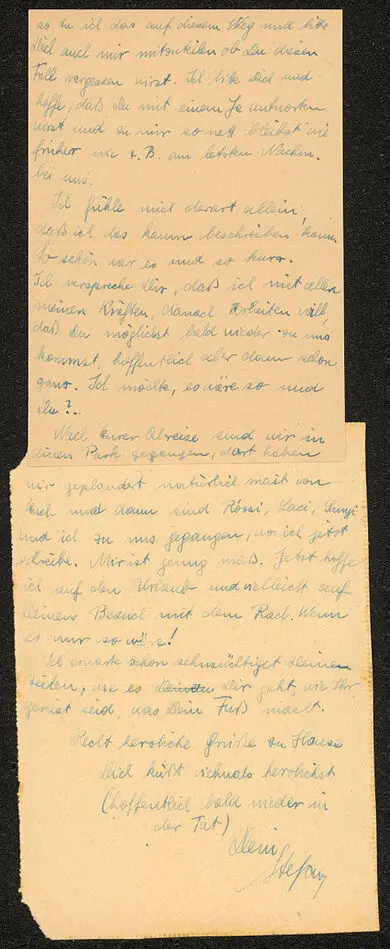 so tu ich das auf diesem Weg und bitte
Dich auch mir mitzuteilen ob Du diesen
Fall vergessen wirst. Ich bitte Dich und
hoffe, daß Du mit einem Ja antworten
wirst und zu mir so nett bleibst wie
früher wie z. B. am letzten Nachm.
bei uns.
Ich fühle mich derart allein,
daß ich das kaum beschreiben kann.
So schön war es und so kurz.
Ich verspreche Dir, daß ich mit allen
meinen Kräften, danach arbeiten will,
daß Du möglichst bald wieder zu uns
kommst, hoffentlich aber dann schon
ganz. Ich möchte, es wäre so und
Du?..
Nach Eurer Abreise sind wir in
einen Park gegangen, dort haben
wir geplaudert natürlich meist von
Euch und dann sind Rózsi, Laci,
und ich zu uns gegangen, wo ich jetzt
schreibe. Mir ist genug mieß. Jetzt hoffe
ich auf den Urlaub und vielleicht auf
Deinen Besuch mit dem Rad. Wenn
es nur so wäre!
Ich erwarte schon sehnsüchtigst Deinen
Zeilen, wie es Dir geht, wie Ihr
gereist seid, was Dein Fuß macht.
Recht herzliche Grüße zu Hause
Dich küßt vielmals herzlichst
(hoffentlich bald wieder in
der Tat)
Dein
Stefan